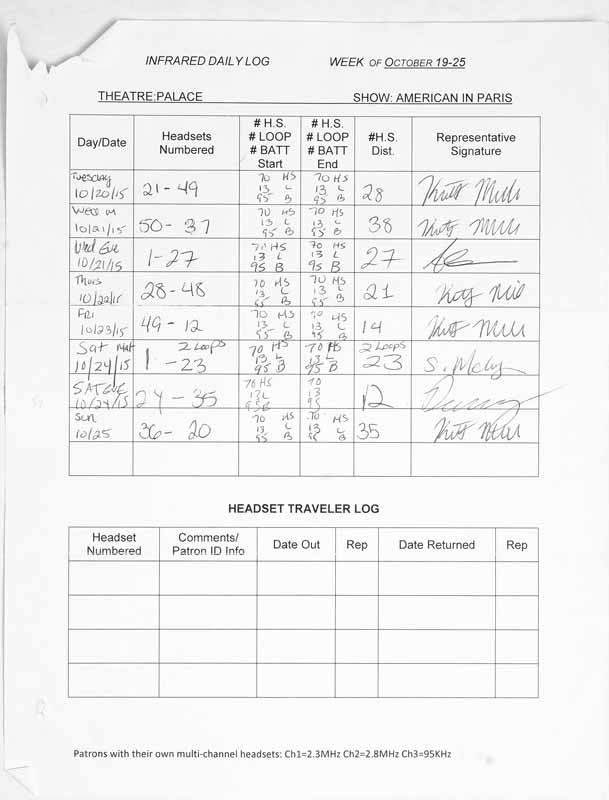 INFRARED DAILY LOG WEEK OF OCTOBER 19-25
THEATRE:PALACE SHOW: AMERICAN IN PARIS
Day/Date Headsets Numbered # H.S. # LOOP # BATT Start # H.S. # LOOP # BATT End #H.S. Dist. Representative Signature
Tuesday 10/20/15 21-49 70 HS 13 L 95 B 70 HS 13 L 95 B 28
Wed M 10/21/15 50-37 70 HS 13 L 95 B 70 HS 13 L 95 B 38
Wed Eve 10/21/15 1-27 70 HS 13 L 95 B 70 HS 13 L 95 B 27
Thurs 10/22/15 28-48 70 HS 13 L 95 B 70 HS 13 L 95 B 21
FRI 10/23/15 49-12 70 HS 13 L 95 B 70 HS 13 L 95 B 14
Sat Mat 10/24/15 1-23 2 Loops 70 HS 13 L 95 B 70 HS 13 L 95 B 2 Loops 23
SAT EVE 10/24/15 24-35 70 HS 13 L 95 B 70 13 95 12
Sun 10/25 36-20 70 HS 13 L 95 B 70 HS 13 L 95 B 35
HEADSET TRAVELER LOG
Headset Numbered Comments/ Patron ID Info Date Out Rep Date Returned Rep
Patrons with their own multi-channel headsets: Ch1=2.3MHz Ch2=2.8MHz Ch3=95KHz